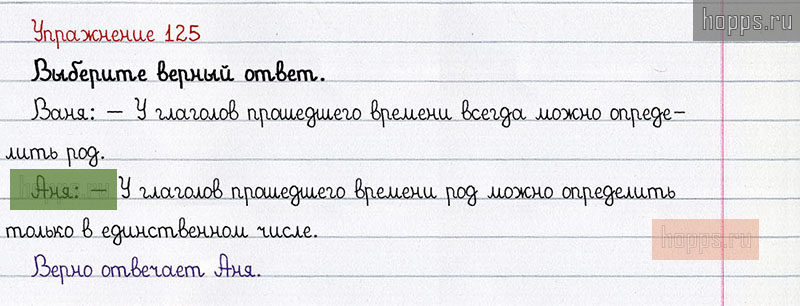 hopps.ru
Упражнение 125
Выберите верный ответ.
Ваня: — У глаголов прошедшего времени всегда можно опреде-
лить род.
Аня: — У глаголов прошедшего времени род можно определить
только в единственном числе.
hopps.ru
Верно отвечает Аня.